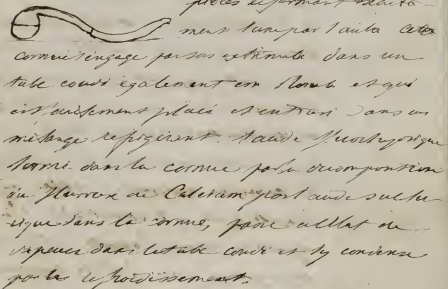 pièces se formant exacte-
ment l'une par l'autre cette
cornue s'engage par son extrémité dans un
tube coudé également en Plomb et qui
est placé et entouré dans un
mélange refrigerent. l'acide fluorhydrique
formé dans la cornue par la decomposition
du fluorure de Calcium par l'acide sulfu
rique dans la cornue, passe à l'état de
vapeur dans le tube coudé et s'y condense
par le refroidissement.